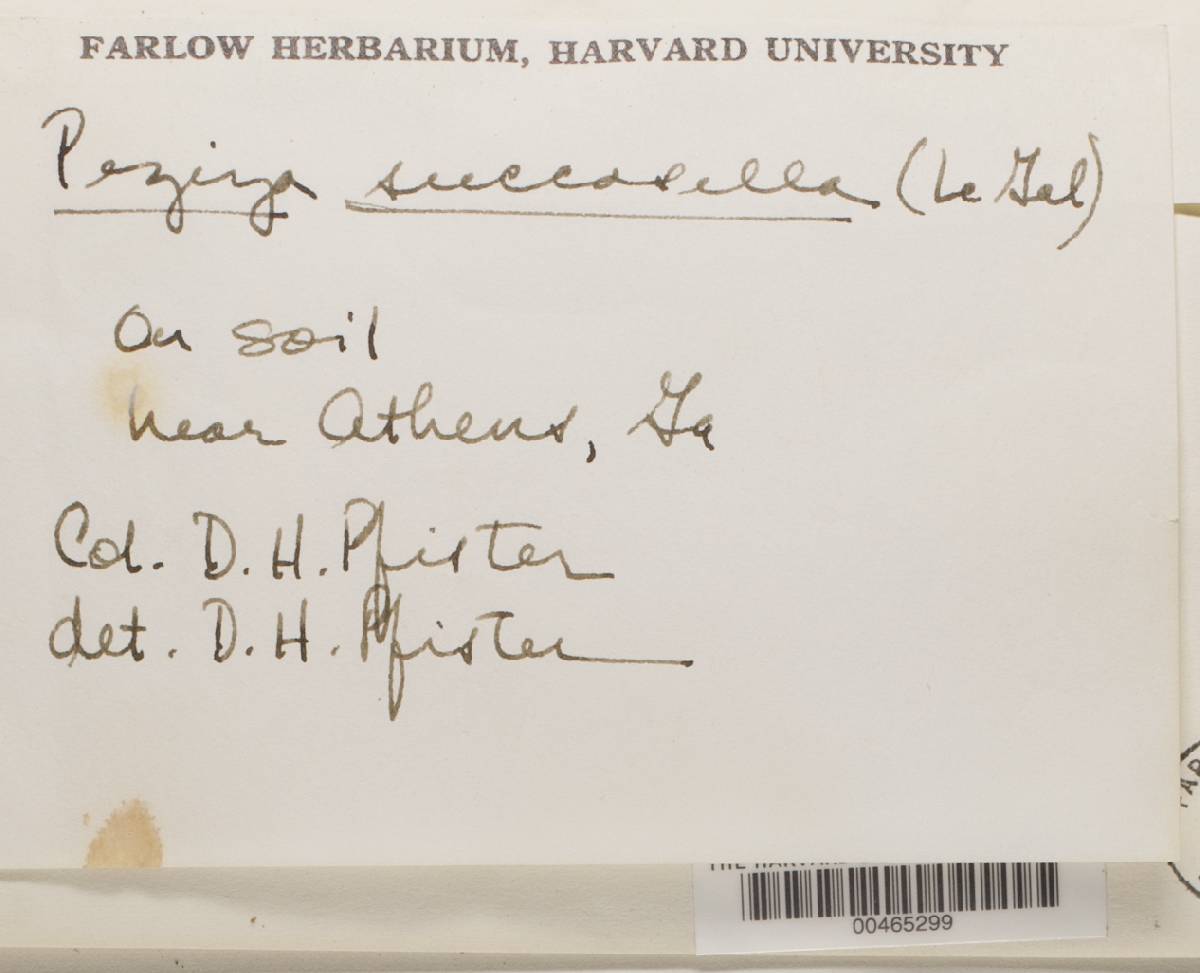 FARLOW HERBARIUM, HARVARD UNIVERSITY
Peziza succosella (Le Gal)
on soil
near Athens, Ga
Col. D. H. Pfister
det. D. H. Pfister
THE HARVARD
00465299